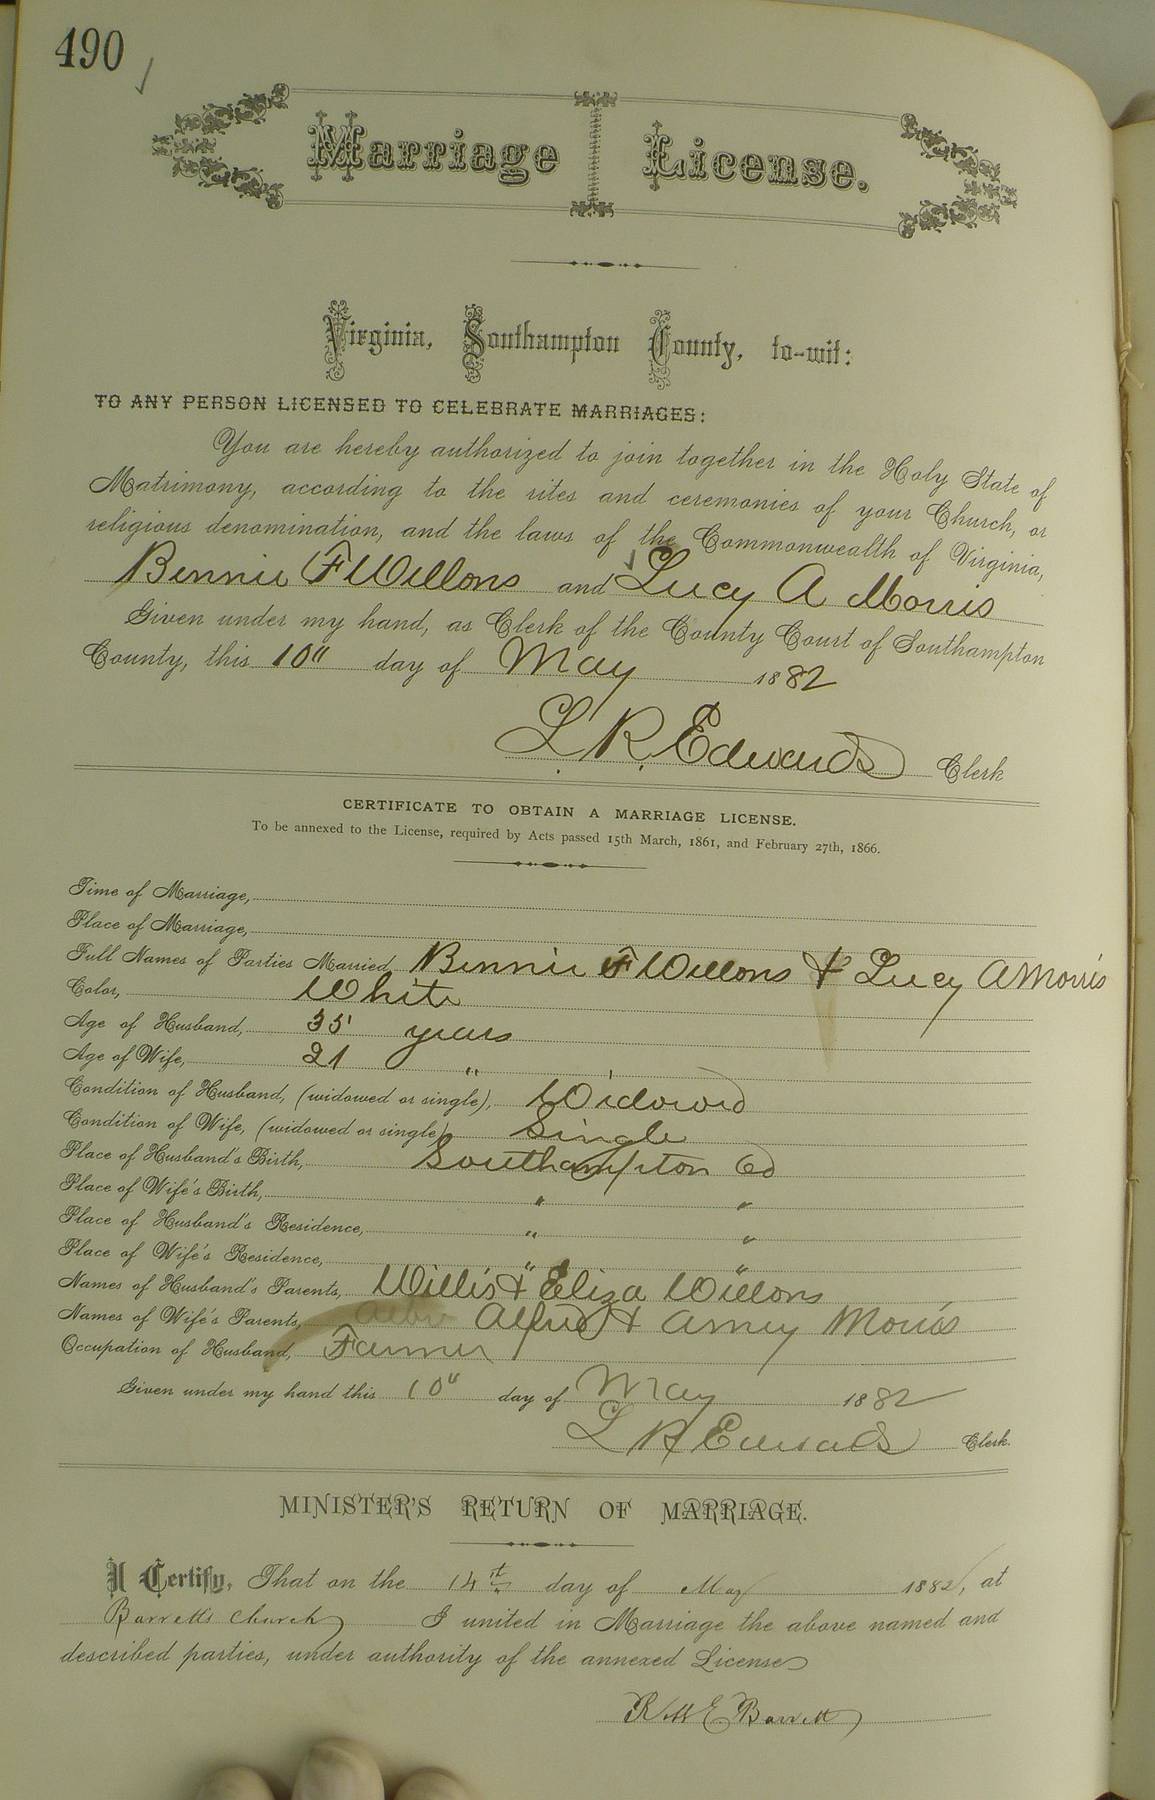 490
Marriage License.
Virginia, Southampton County, to-wit:
TO ANY PERSON LICENSED TO CELEBRATE MARRIAGES:
You are hereby authorized to join together in the Holy State of
Matrimony, according to the rites and ceremonies of your Church, or
religious denomination, and the laws of the Commonwealth of Virginia,
Bennie F Willons and Lucy A Morris
Given under my hand, as Clerk of the County Court of Southampton
County, this 10" day of May 1882
L. R. Edwards Clerk
CERTIFICATE TO OBTAIN A MARRIAGE LICENSE.
To be annexed to the License, required by Acts passed 15th March, 1861, and February 27th, 1866.
Time of Marriage,
Place of Marriage,
Full Names of Parties Married, Bennie F Willons & Lucy A Morris
Color, White
Age of Husband, 35 years
Age of Wife, 21 "
Condition of Husband, (widowed or single), Widowed
Condition of Wife, (widowed or single) Single
Place of Husband's Birth, Southampton Co
Place of Wife's Birth, " "
Place of Husband's Residence, " "
Place of Wife's Residence, " "
Names of Husband's Parents, Willis & Eliza Willons
Names of Wife's Parents, Alfred & Amey Morris
Occupation of Husband, Farmer
Given under my hand this 10" day of May 1882
L R Edwards Clerk.
MINISTER'S RETURN OF MARRIAGE.
I Certify, That on the 14th day of May 1882, at
Barretts Church I united in Marriage the above named and
described parties, under authority of the annexed License
Robt E Barrett